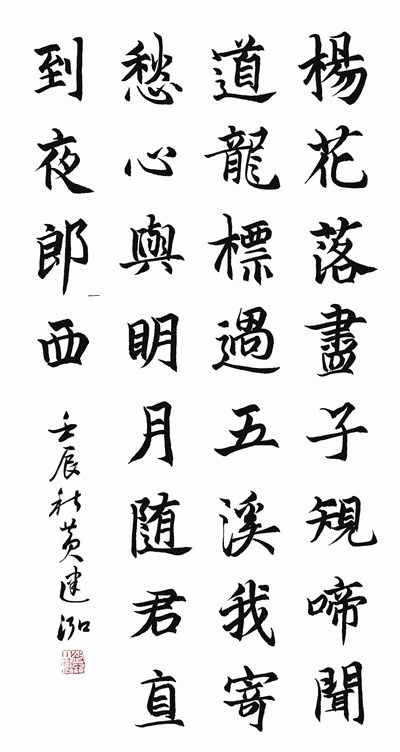 楊花落盡子規啼聞
道龍標過五溪我寄
愁心與明月随君直
到夜郎西
壬辰秋黄建泓